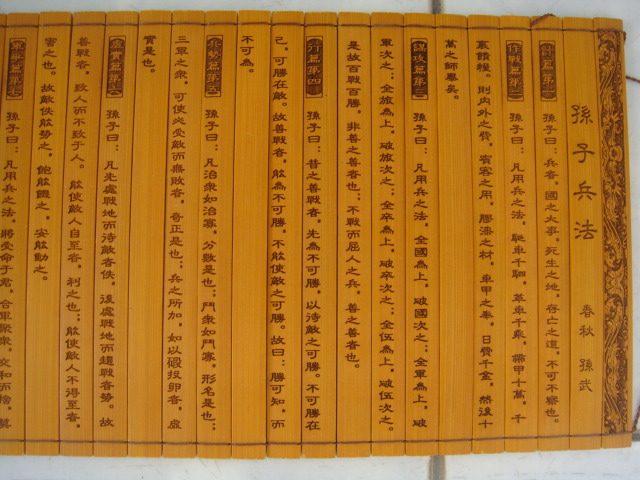 孫子兵法 春秋 孫武
計篇第一 孫子曰：兵者，國之大事，死生之地，存亡之道，不可不察也。
作戰篇第二 孫子曰：凡用兵之法，馳車千駟，革車千乘，帶甲十萬，千
裏饋糧。則內外之費，賓客之用，膠漆之材，車甲之奉，日費千金，然後十
萬之師舉矣。
謀攻篇第三 孫子曰：凡用兵之法，全國為上，破國次之；全軍為上，破
軍次之；全旅為上，破旅次之；全卒為上，破卒次之；全伍為上，破伍次之。
是故百戰百勝，非善之善者也；不戰而屈人之兵，善之善者也。
行篇第四 孫子曰：昔之善戰者，先為不可勝，以待敵之可勝。不可勝在
己，可勝在敵。故善戰者，能為不可勝，不能使敵之可勝。故曰：勝可知，而
不可為。
兵勢篇第五 孫子曰：凡治衆如治寡，分數是也；鬥衆如鬥寡，形名是也；
三軍之衆，可使必受敵而無敗者，奇正是也；兵之所加，如以碬投卵者，虛
實是也。
虛實篇第六 孫子曰：凡先處戰地而待敵者佚，後處戰地而趨戰者勞。故
善戰者，致人而不致于人。能使敵人自至者，利之也；能使敵人不得至者，
害之也。故敵佚能勞之，飽能饑之，安能動之。
軍爭篇第七 孫子曰：凡用兵之法，將受命于君，合軍聚衆，交和而捨，莫